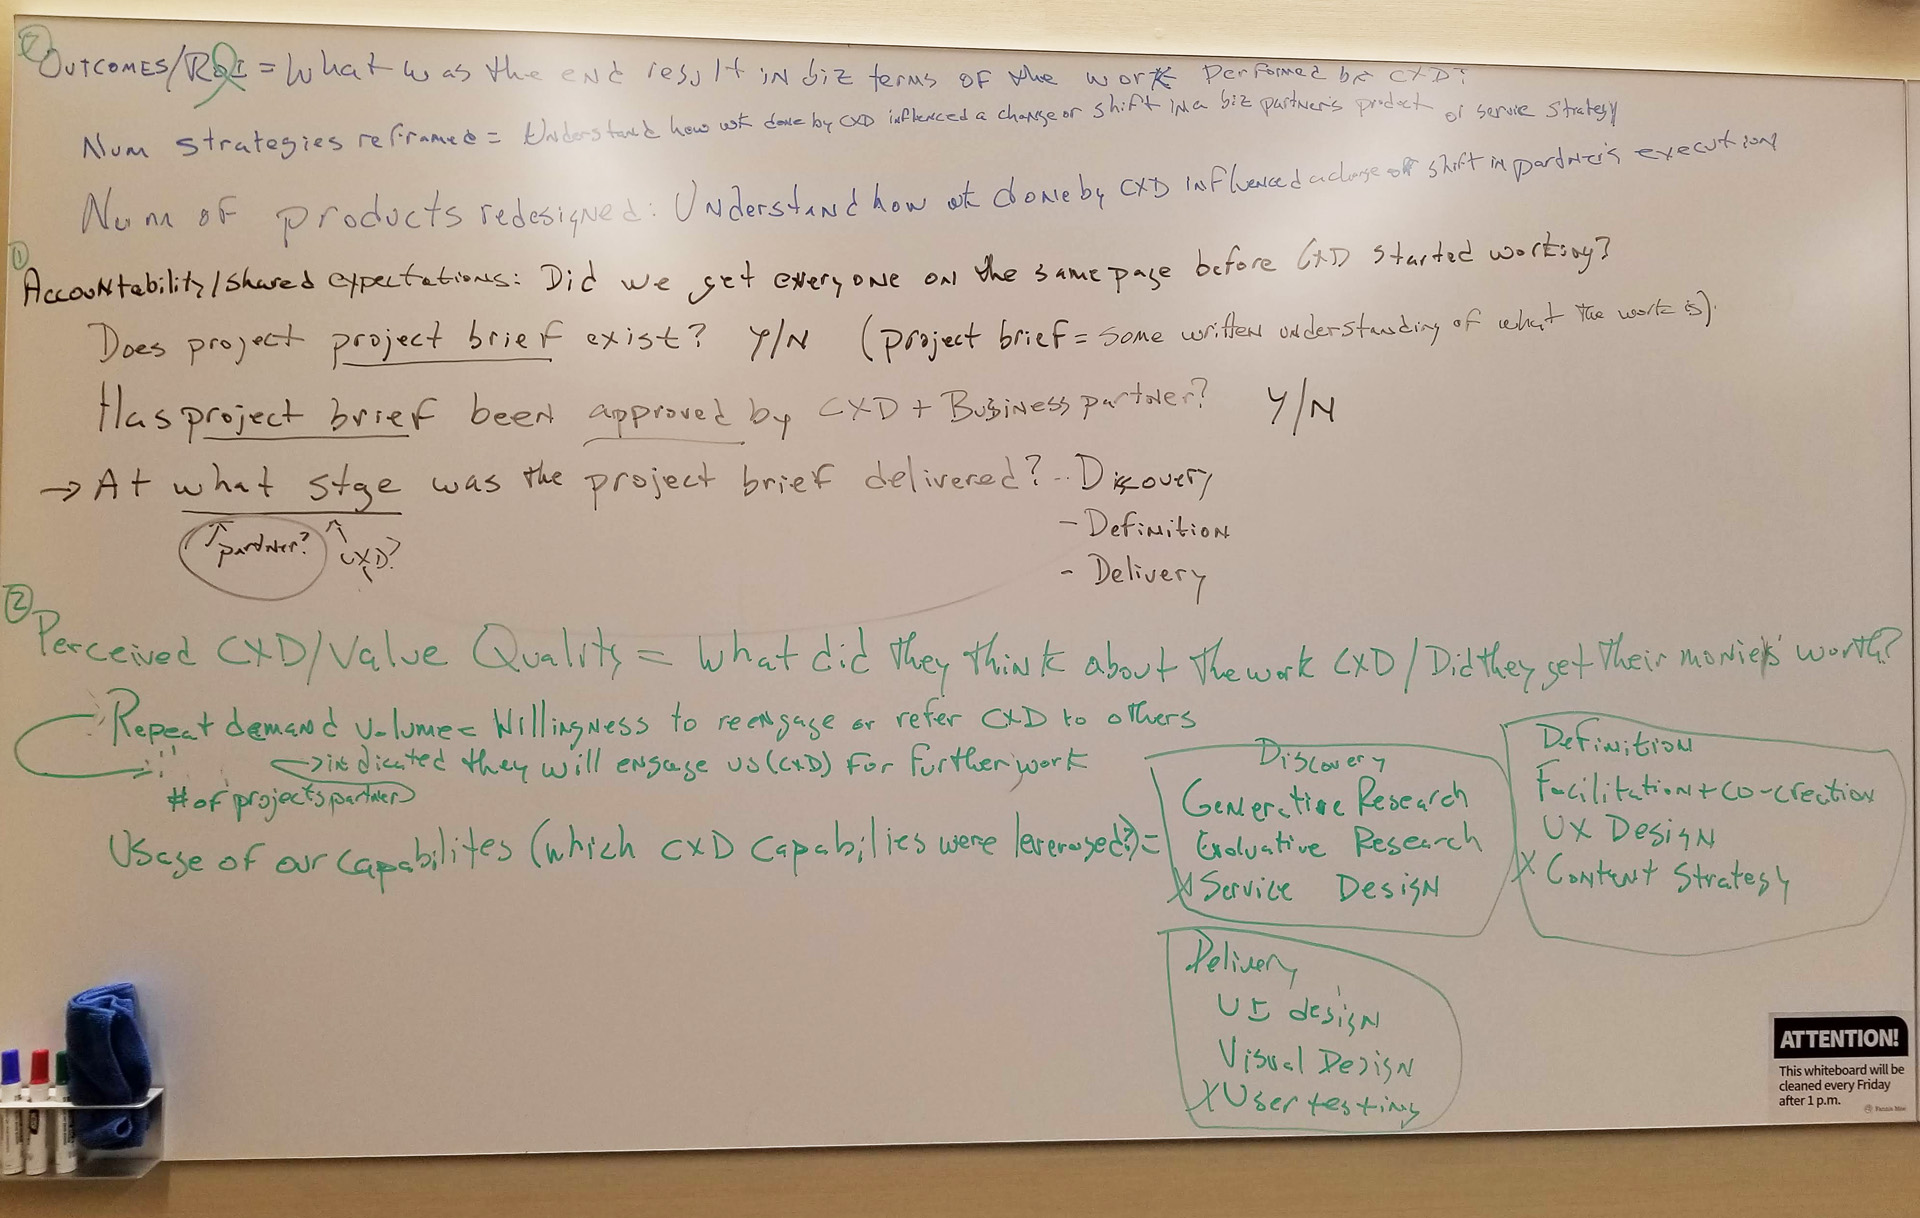 OUTCOMES/ROI = What was the end result in biz terms of the work performed by CXD?
Num strategies reframed = Understand how wk done by CXD influenced a change or shift in a biz partner's product or service strategy
Num of products redesigned: Understand how wk done by CXD influenced a change or shift in partner's execution
①
Accountability/shared expectations: Did we get everyone on the same page before CXD started working?
Does project project brief exist? Y/N (project brief = some written understanding of what the work is).
Has project brief been approved by CXD + Business partner? Y/N
→ At what stge was the project brief delivered? - Discovery
- Definition
- Delivery
partner? CXD?
②
Perceived CXD/Value Quality = What did they think about the work CXD / Did they get their monies worth?
Repeat demand volume = Willingness to reengage or refer CXD to others
→ indicated they will engage us (CXD) for further work
# of projects partner
Usage of our capabilites (which CXD capabilies were leveraged?) =
Discovery
Generative Research
Evaluative Research
X Service Design
Definition
Facilitation + co-creation
UX Design
X Content Strategy
Delivery
UI design
Visual Design
X User testing
ATTENTION!
This whiteboard will be
cleaned every Friday
after 1 p.m.
Fannie Mae